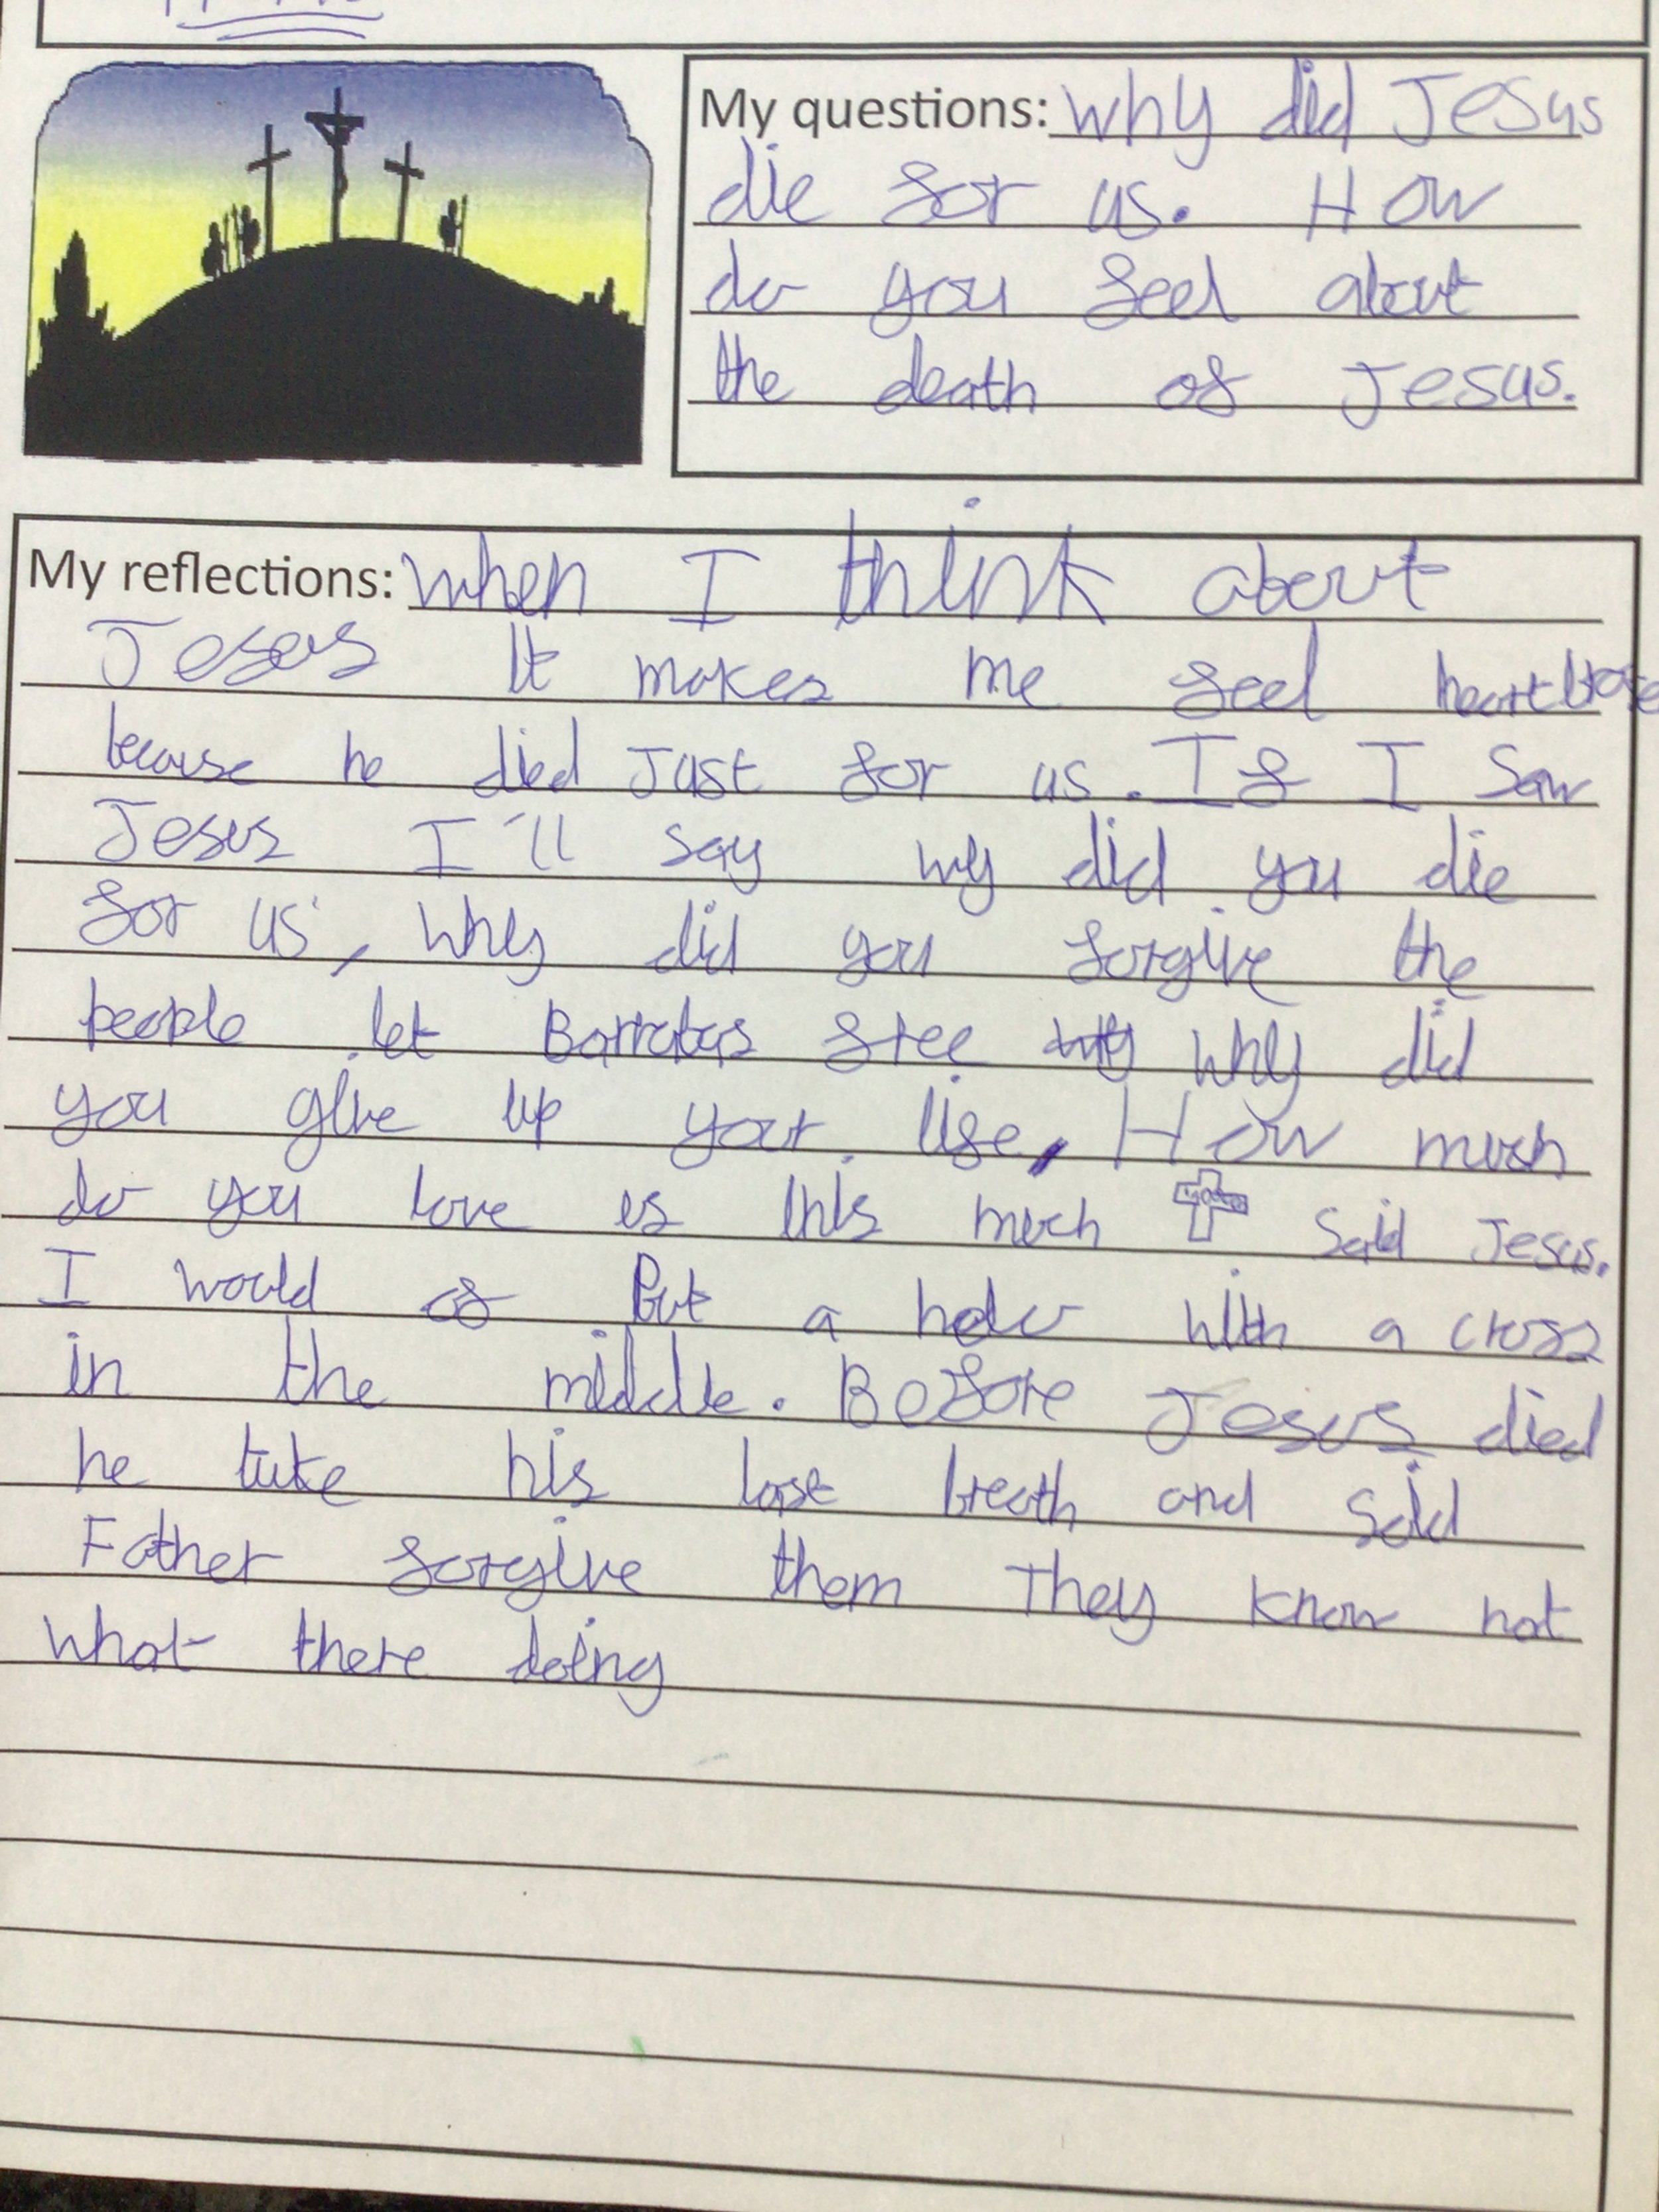 My questions: why did Jesus
die for us. How
do you feel about
the death of Jesus.
My reflections: when I think about
Jesus It makes me feel
because he died Just for us. If I saw
Jesus I'll say wy did you die
for us, why did you forgive the
people let Barrabas free why did
you give up your life, How much
do you love us this much said Jesus.
I would of Put a holo with a cross
in the middle. Before Jesus died
he take his last breath and said
Father forgive them They know not
what there doing